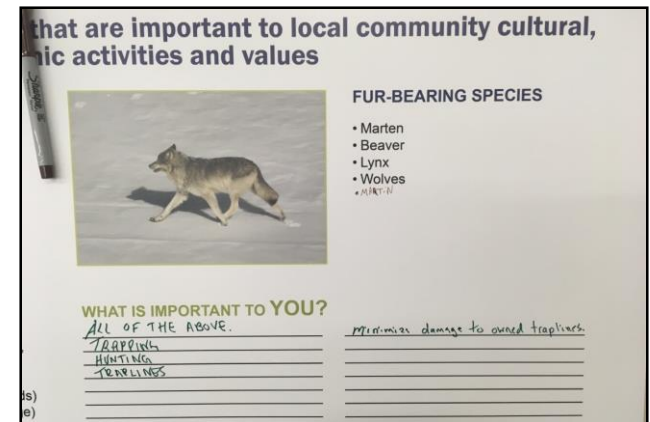 that are important to local community cultural,
nic activities and values
Sharpie
FUR-BEARING SPECIES
• Marten
• Beaver
• Lynx
• Wolves
• MART-N
WHAT IS IMPORTANT TO YOU?
ALL OF THE ABOVE.
TRAPPING
HUNTING
TRAPLINES
Minimize damage to owned traplines
ds)
e)